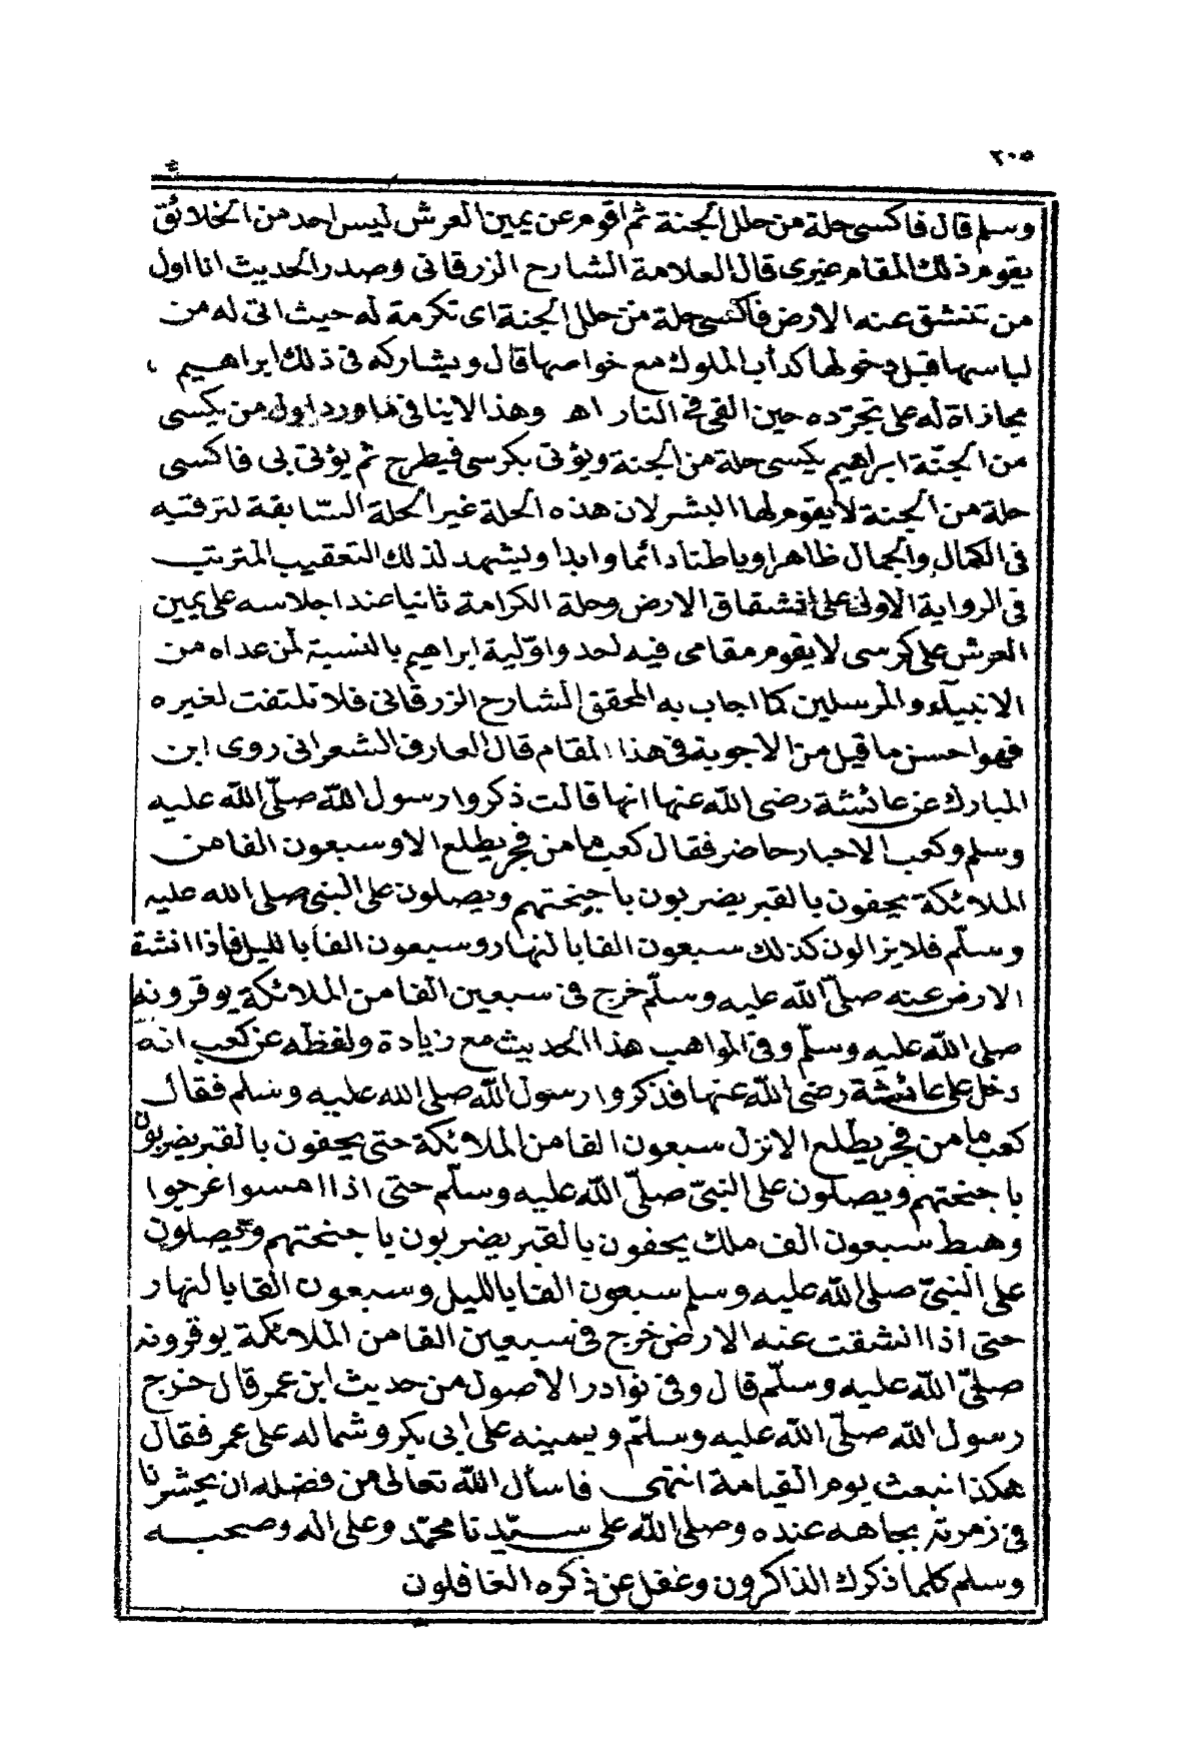 ٢٠٥
وسلم قال فاكسى حلة من حلل الجنة ثم اقوم عن يمين العرش ليس احد من الخلائق
يقوم ذلك المقام غيرى قال العلامة الشارح الزرقانى وصدر الحديث انا اول
من تنشق عنه الارض فاكسى حلة من حلل الجنة اى تكرمة له حيث اتى له من
لباسها قبل دخولها كدأب الملوك مع خواصها قال ويشاركه فى ذلك ابراهيم
مجازاة له على تجرّده حين القى فى النار اه وهذا لاينافى ما ورد اول من يكسى
من الجنّة ابراهيم يكسى حلة من الجنة ويؤتى بكرسى فيطرح ثم يؤتى بى فاكسى
حلة من الجنة لا يقوم لها البشر لان هذه الحلة غير الحلة السّابقة لترقيه
فى الكمال والجمال ظاهرا وباطنا دائما وابدا ويشهد لذلك التعقيب المترتب
فى الرواية الاولى على انشقاق الارض وحلة الكرامة ثانيا عند اجلاسه على يمين
العرش على كرسى لا يقوم مقامى فيه احد واوّلية ابراهيم بالنسبة لمن عداه من
الانبيآء والمرسلين كما اجاب به المحقق الشارح الزرقانى فلا تلتفت لغيره
فهو احسن ما قيل من الاجوبة فى هذا المقام قال العارف الشعرانى روى ابن
المبارك عن عائشة رضى الله عنها انها قالت ذكروا رسول اللّه صلّى اللّه عليه
وسلم وكعب الاحبار حاضر فقال كعب ما من فجر يطلع الا وسبعون الفا من
الملائكة يحفون بالقبر يضربون باجنحتهم ويصلون على النبى صلى الله عليه
وسلّم فلا يزالون كذلك سبعون الفا بالنهار وسبعون الفا بالليل فاذا انشقت
الارض عنه صلّى اللّه عليه وسلّم خرج فى سبعين الفا من الملائكة يوقرونه
صلى اللّه عليه وسلّم وفى المواهب هذا الحديث مع زيادة ولفظه عن كعب انه
دخل على عائشة رضى اللّه عنها فذكروا رسول اللّه صلى الله عليه وسلم فقال
كعب ما من فجر يطلع الا نزل سبعون الفا من الملائكة حتى يحفون بالقبر يضربون
باجنحتهم ويصلون على النبىّ صلّى اللّه عليه وسلّم حتى اذا امسوا عرجوا
وهبط سبعون الف ملك يحفون بالقبر يضربون باجنحتهم ويصلون
على النبىّ صلى اللّه عليه وسلم سبعون الفا بالليل وسبعون الفا بالنهار
حتى اذا انشقت عنه الارض خرج فى سبعين الفا من الملائكة يوقرونه
صلّى اللّه عليه وسلّم قال وفى نوادر الاصول من حديث ابن عمر قال خرج
رسول اللّه صلّى اللّه عليه وسلّم ويمينه على ابى بكر وشماله على عمر فقال
هكذا نبعث يوم القيامة انتهى فاسأل اللّه تعالى من فضله ان يحشرنا
فى زمرته بجاهه عنده وصلى اللّه على سيّدنا محمّد وعلى اله وصحبه
وسلم كلما ذكرك الذاكرون وغفل عن ذكره الغافلون